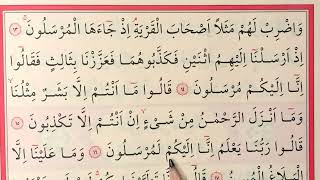 وَاضْرِبْ لَهُمْ مَثَلًا اَصْحَابَ الْقَرْيَةِ اِذْ جَٓاءَهَا الْمُرْسَلُونَۚ ﴿١٣﴾
اِذْ اَرْسَلْنَٓا اِلَيْهِمُ اثْنَيْنِ فَكَذَّبُوهُمَا فَعَزَّزْنَا بِثَالِثٍ فَقَالُٓوا
اِنَّٓا اِلَيْكُمْ مُرْسَلُونَ ﴿١٤﴾ قَالُوا مَٓا اَنْتُمْ اِلَّا بَشَرٌ مِثْلُنَاۙ
وَمَٓا اَنْزَلَ الرَّحْمٰنُ مِنْ شَیْءٍۙ اِنْ اَنْتُمْ اِلَّا تَكْذِبُونَ ﴿١٥﴾
قَالُوا رَبُّنَا يَعْلَمُ اِنَّٓا اِلَيْكُمْ لَمُرْسَلُونَ ﴿١٦﴾ وَمَا عَلَيْنَٓا اِلَّا
الْبَلَاغُ الْمُبِينُ